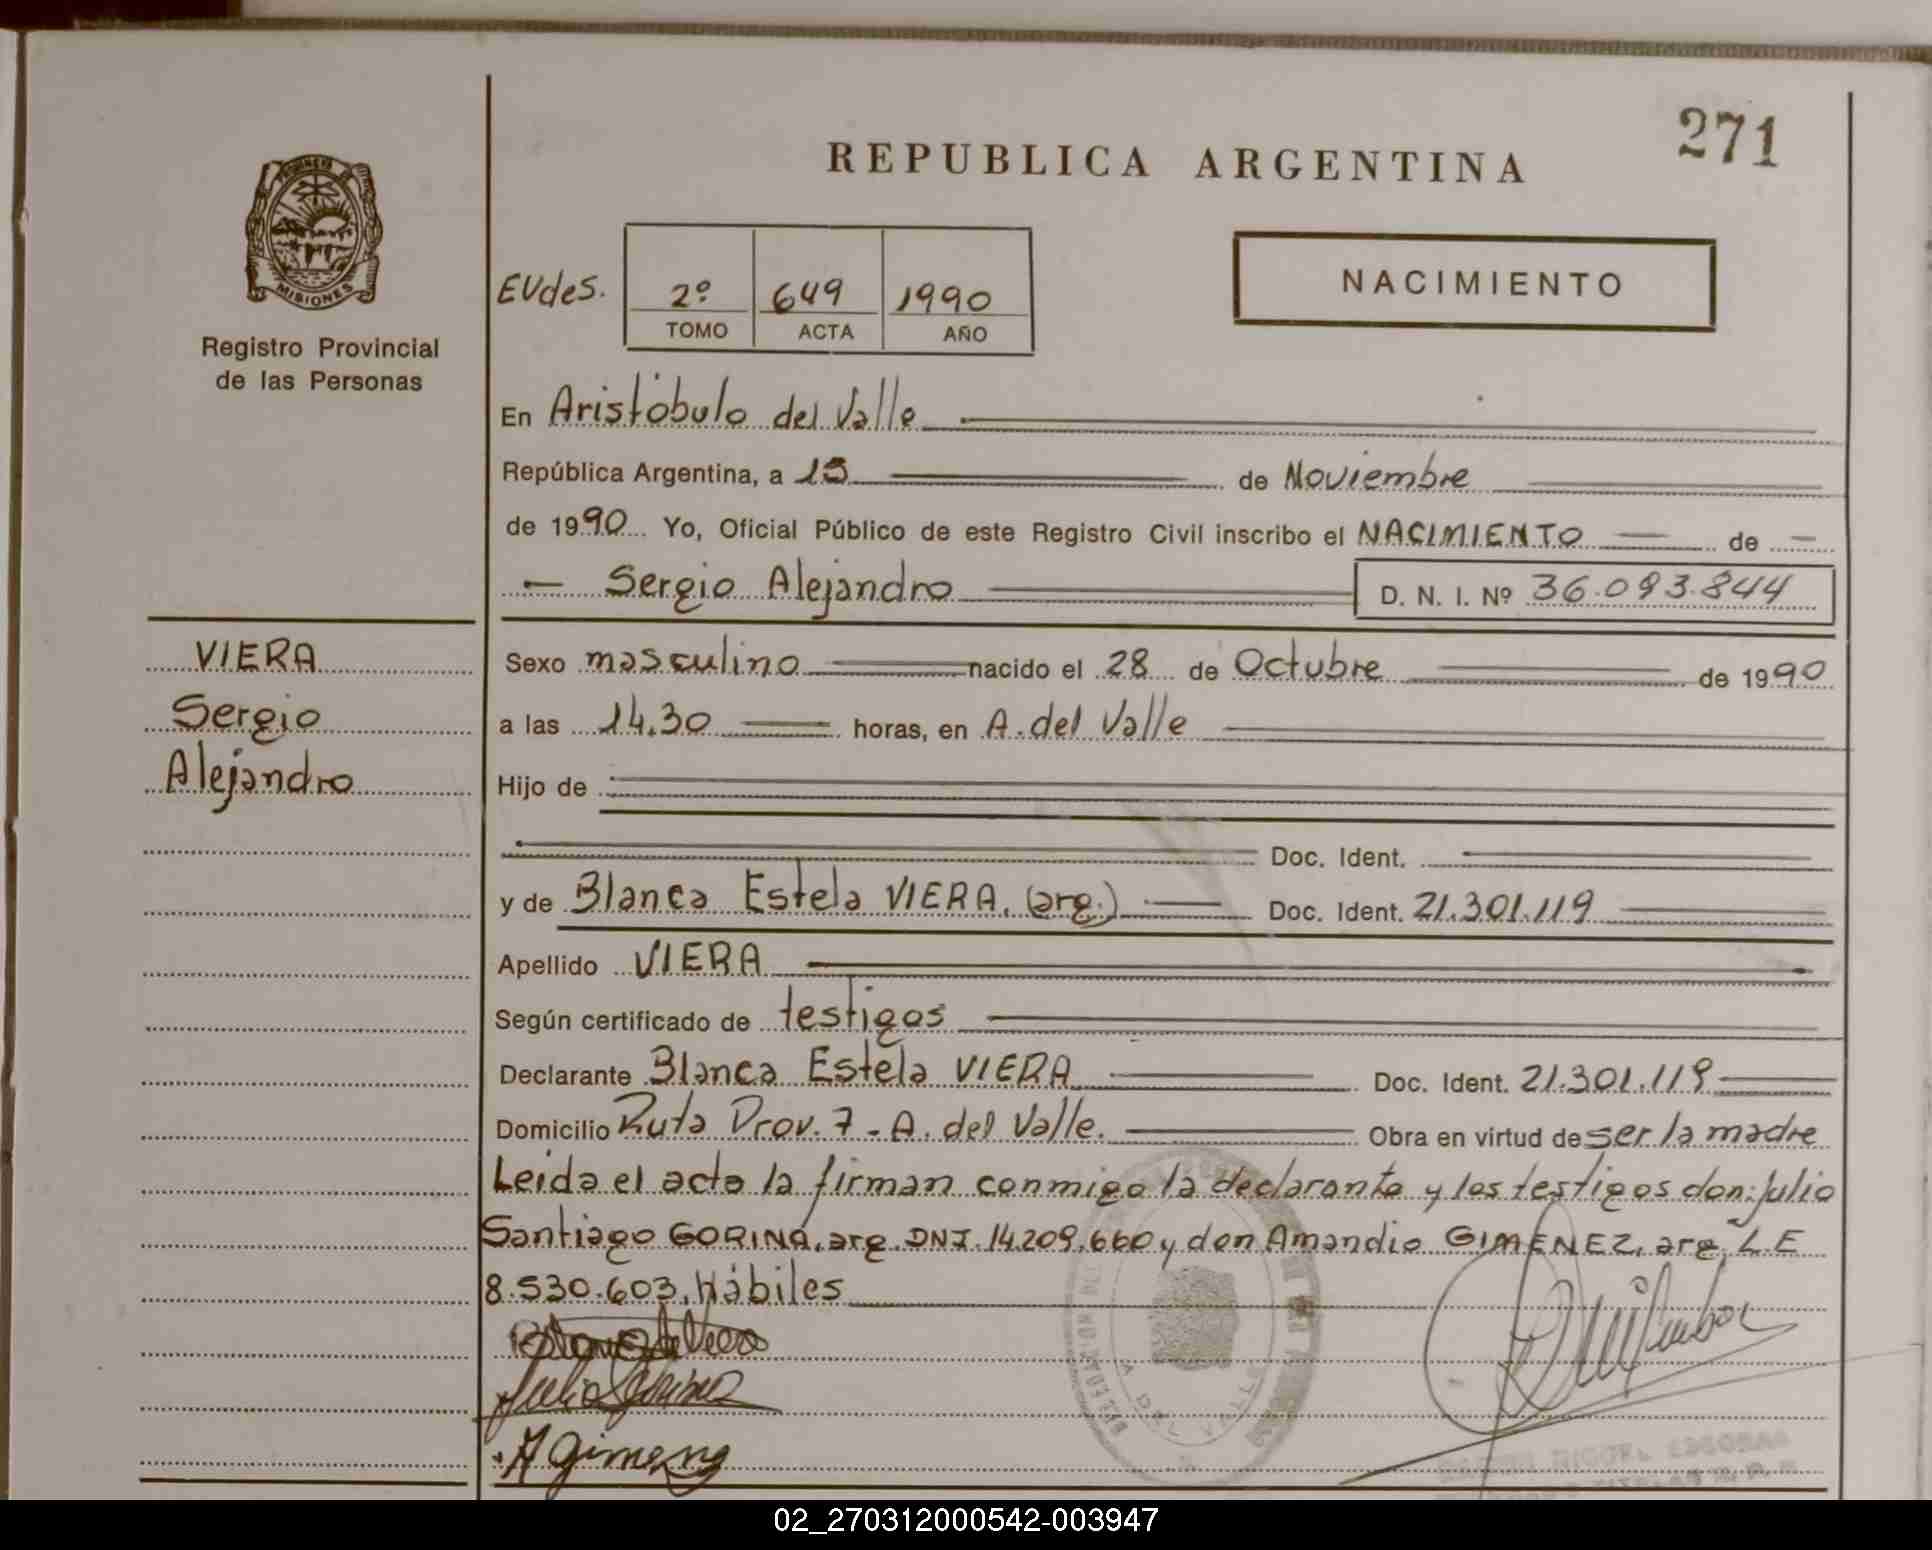 271
REPUBLICA ARGENTINA
PROVINCIA DE
MISIONES
Registro Provincial
de las Personas
EUdes.
2º 649 1990
TOMO ACTA AÑO
NACIMIENTO
En Aristóbulo del Valle
República Argentina, a 15 de Noviembre
de 1990 Yo, Oficial Público de este Registro Civil inscribo el NACIMIENTO de
Sergio Alejandro D. N. I. Nº 36.093.844
VIERA
Sergio
Alejandro
Sexo masculino nacido el 28 de Octubre de 1990
a las 14.30 horas, en A. del Valle
Hijo de
Doc. Ident.
y de Blanca Estela VIERA. (arg.) Doc. Ident. 21.301.119
Apellido VIERA
Según certificado de testigos
Declarante Blanca Estela VIERA Doc. Ident. 21.301.119
Domicilio Ruta Prov. 7 - A. del Valle. Obra en virtud de ser la madre
Leida el acta la firman conmigo la declarante y los testigos don: Julio
Santiago GORINA, arg. DNI. 14.209.660 y don Amandio GIMENEZ, arg. L.E
8.530.603, Hábiles
A Gimenez
MIGUEL ESCOBAR
02_270312000542-003947